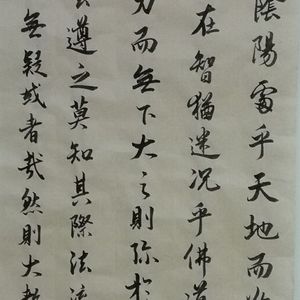 陰陽處乎天地而
在智猶迷況乎佛道
力而無下大之則弥於
遵之莫知其際法流
無疑或者哉然則大教